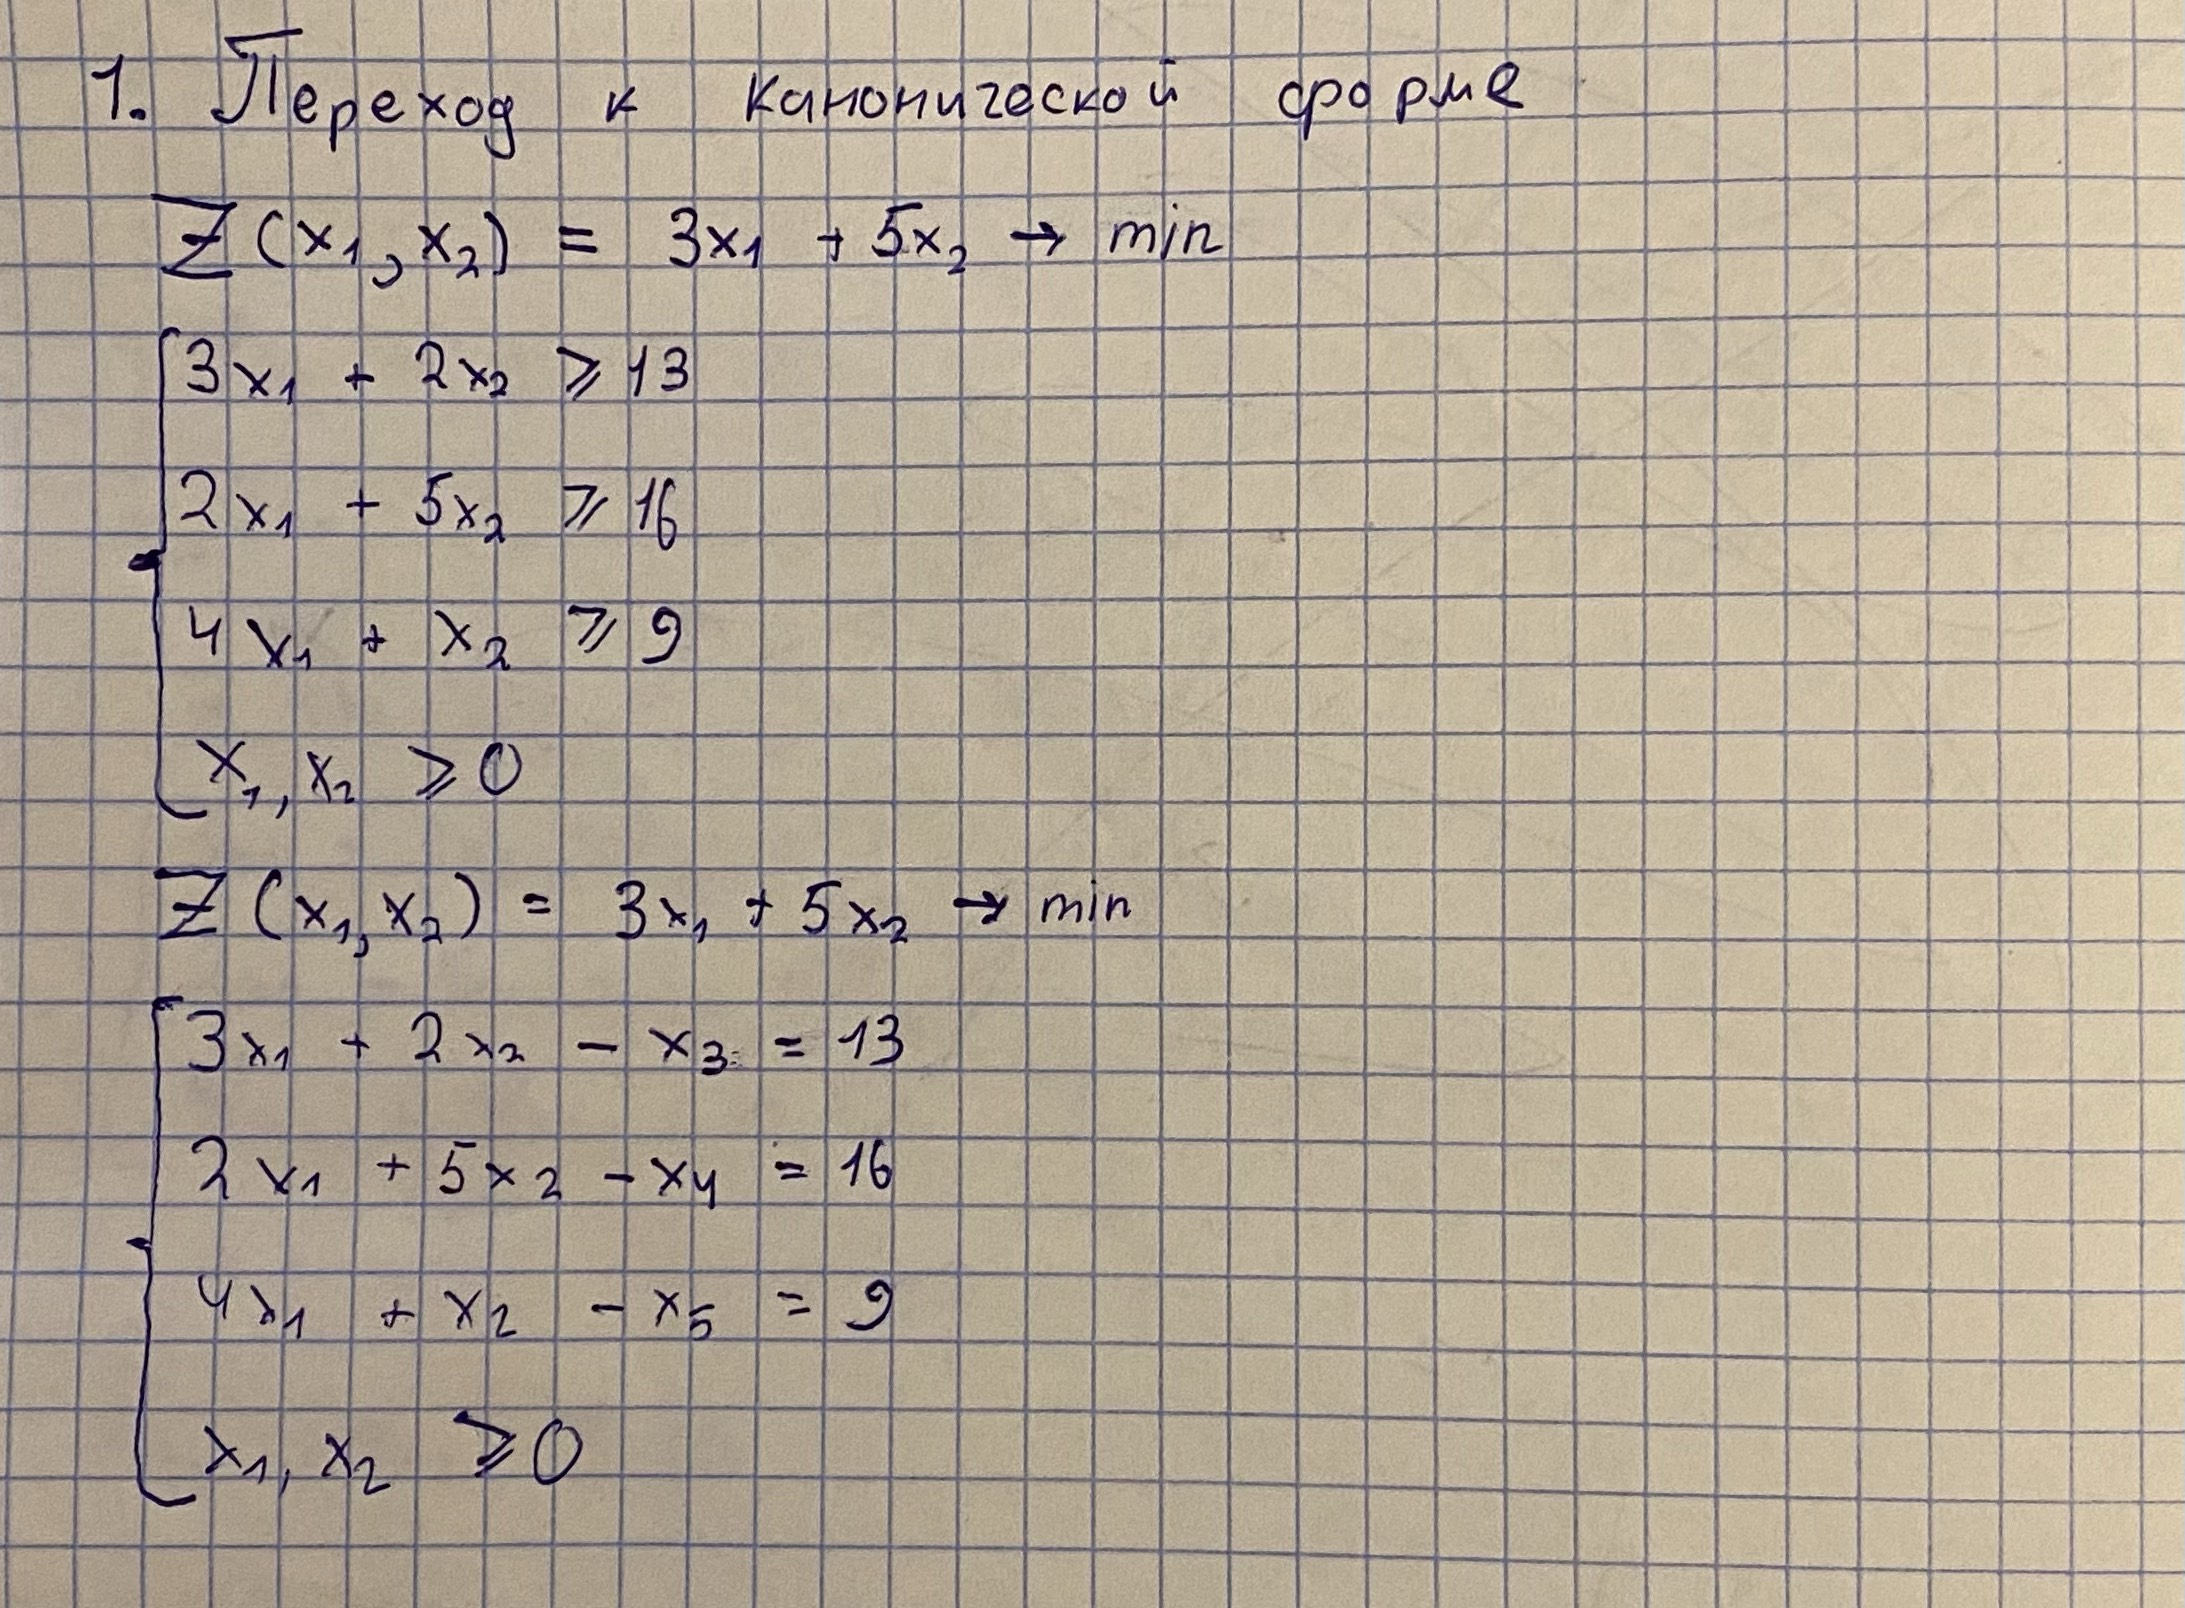 1. Переход к канонической форме
Z(x₁, x₂) = 3x₁ + 5x₂ → min
3x₁ + 2x₂ ⩾ 13
2x₁ + 5x₂ ⩾ 16
4x₁ + x₂ ⩾ 9
x₁, x₂ ⩾ 0
Z(x₁, x₂) = 3x₁ + 5x₂ → min
3x₁ + 2x₂ - x₃ = 13
2x₁ + 5x₂ - x₄ = 16
4x₁ + x₂ - x₅ = 9
x₁, x₂ ⩾ 0